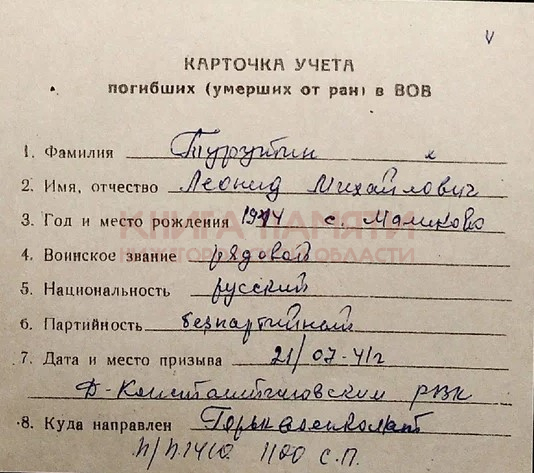 КАРТОЧКА УЧЕТА
погибших (умерших от ран) в ВОВ
1. Фамилия Турутин
2. Имя, отчество Леонид Михайлович
3. Год и место рождения 1914 с. Маликово
КНИГА ПАМЯТИ
НИЖЕГОРОДСКОЙ ОБЛАСТИ
4. Воинское звание рядовой
5. Национальность русский
6. Партийность безпартийный
7. Дата и место призыва 21/07-41г
Д-Константиновским РВК
8. Куда направлен Горьквоенкомат
п/п.1410 1100 с.п.